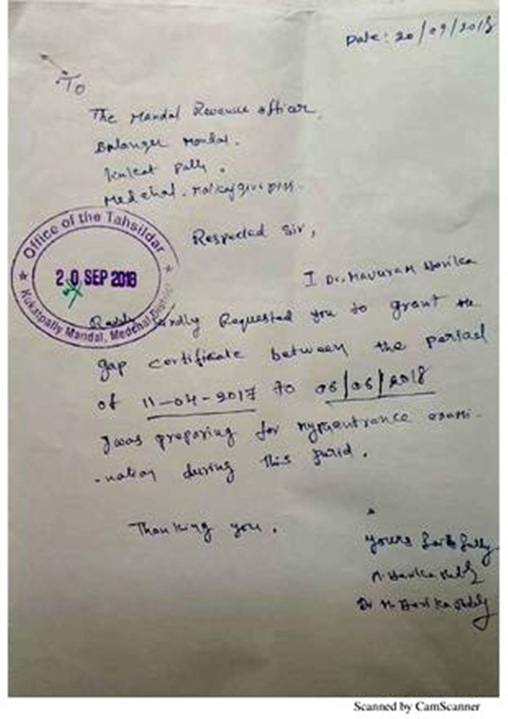 Date: 20/09/2018
To
The Mandal Revenue officer,
Balanger Mandal.
Kukat Pally.
Medchal. Malkajgiri Dist.
Respected Sir,
Office of the Tahsildar
20 SEP 2018
Kukatpally Mandal, Medchal District
I Dr. Mavuram Harika
Reddy kindly Requested you to grant the
gap certificate between the period
of 11-04-2017 to 06/06/2018
I was preparing for my entrance exami-
-nation during this period.
Thanking you.
Yours faithfully
M. Harika Reddy
Dr M. Harika Reddy
Scanned by CamScanner